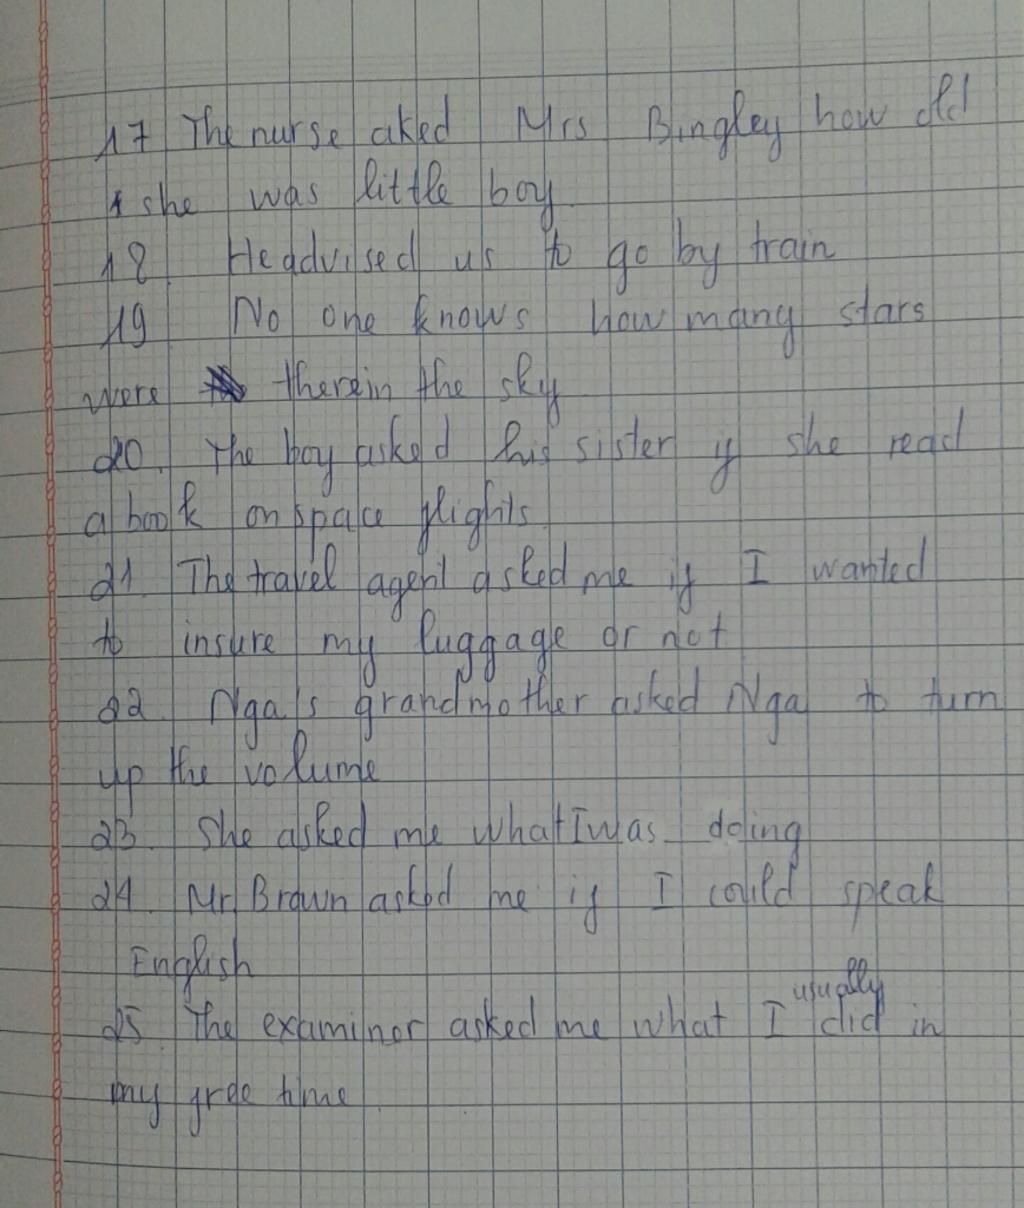 17 The nurse aked Mrs Bingley how old
she was little boy
18 He advised us to go by train
19 No one knows how many stars
were there in the sky
20. The boy asked his sister if she read
a book on space flights
21. The travel agent asked me if I wanted
to insure my luggage or not
22. Nga's grandmother asked Nga to turn
up the volume
23. She asked me what I was doing
24. Mr Brown asked me if I could speak
English
usually
25. The examinor asked me what I did in
my free time